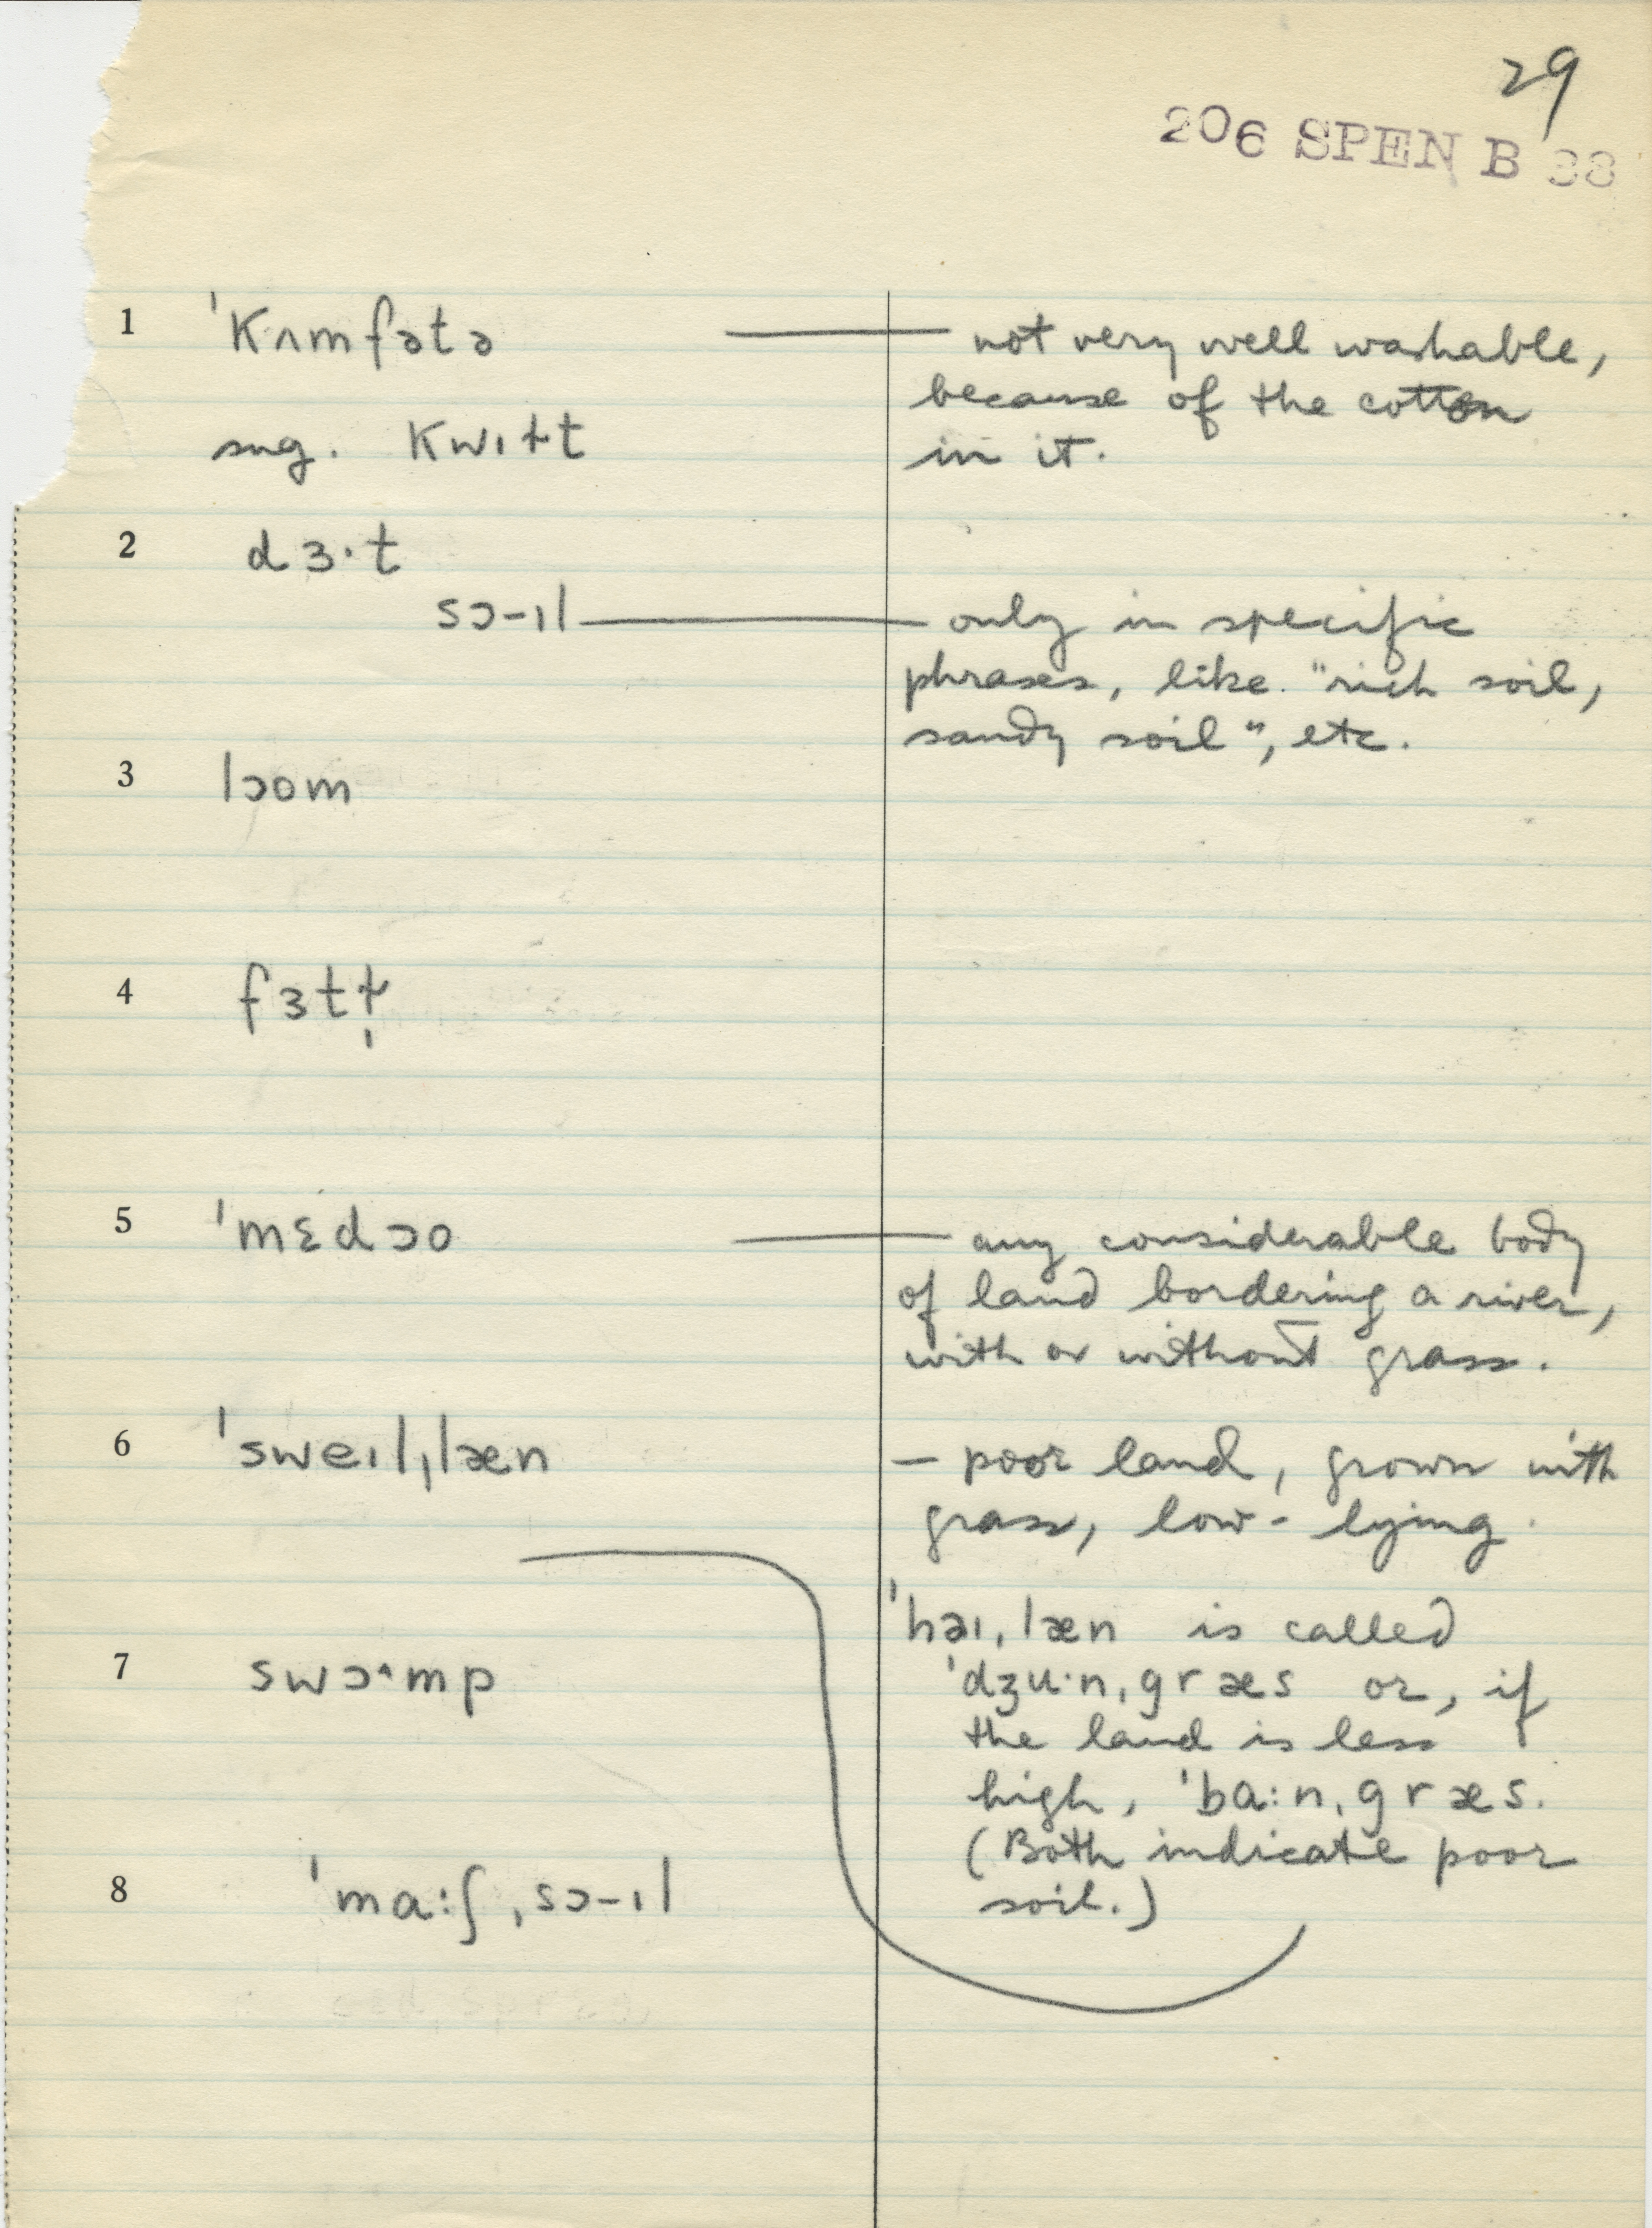 29
206 SPEN B 38
1 ˈkʌmfətə — not very well washable,
because of the cotton
sug. kwɪɫt in it.
2 dɜ·t
sɔ-ɪl — only in specific
phrases, like "rich soil,
sandy soil", etc.
3 lɔom
4 fɜtɫ̩
5 ˈmɛdɔo — any considerable body
of land bordering a river,
with or without grass.
6 ˈsweɪlˌlæn — poor land, grown with
grass, low-lying.
ˈhəɪˌlæn is called
7 swɔ˄mp ˈdʒu·nˌgræs or, if
the land is less
high, ˈba:nˌgræs.
(Both indicate poor
8 ˈma:ʃˌsɔ-ɪl soil.)